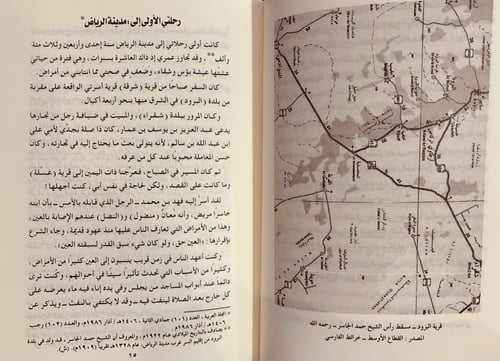 رحلتي الأولى إلى: مدينة الرياض*
كانت أولى رحلاتي إلى مدينة الرياض سنة إحدى وأربعين وثلاث مئة
وألف**، وقد تجاوز عمري إذ ذاك العاشرة بسنوات، وهي فترة من حياتي
عشتها عيشة بؤس وشقاء، وضعف في صحتي مما انتابني من أمراض.
كان السفر صباحا من قرية (شرقة) قرية أسرتي الواقعة على مقربة
من بلدة (البرود) في الشرق منها بنحو أربعة أكيال.
وكان المرور ببلدة (شقراء)، والمبيت في ضيافة رجل من تجارها
يدعى عبد العزيز بن يوسف بن عمار، كان ذا صلة بجدّي لأمي علي
ابن عبد الله بن سالم، لأنه يتولى بعث ما يحتاج إليه في تجارته، وكان
حسن المعاملة محبوبا عند كل من عرفه.
ثم كان المسير في الصباح، فعرّجنا ذات اليمين إلى قرية (غسلة)
وما كانت على القصد، ولكن لحاجة في نفس أبي، كنت أجهلها!
لقد أسرّ إليه فهد بن محمد - الرجل الذي قابله بالأمس - بأن ابنه
جاسرا مريض، وأنه مُعان (منضول) و(النضل) عندهم الإصابة بالعين،
وهذا من الأمراض التي تعارف الناس عليها منذ عهود قديمة، وجاء الشرع
بإقرارها: «العين حق، ولو كان شيء سبق القدر لسبقته العين».
وكنت أعهد الناس في زمن قريب ينسبون إلى العين كثيرا من الأمراض،
وكثيرا من الأسباب التي تحدث تأثيرا سيئا في أحوالهم، وكنت ترى
دائما عند أبواب المساجد من يجلس وفي يده إناء فيه ماء يعرضه على
كل خارج بعد الصلاة لينفث فيه - وقد لا يكتفي بالنفث - ويذكر عن
* المجلة العربية، العدد (١٠١) جمادى الثانية ١٤٠٦هـ/ آذار ١٩٨٦م. والعدد (١٠٢) رجب
١٤٠٦هـ/ آذار ١٩٨٦م.
** يصادف بالتاريخ الميلادي عام ١٩٢٢م، والمعروف أن الشيخ حمد الجاسر، قد ولد في بلدة
البرود من إقليم السر غرب مدينة الرياض، عام ١٣٢٨هـ تقريبا (١٩٠٩م). (ش)
١٥
قرية البرود - مسقط رأس الشيخ حمد الجاسر - رحمه الله
المصدر: القطاع الأوسط - خرائط الفارسي